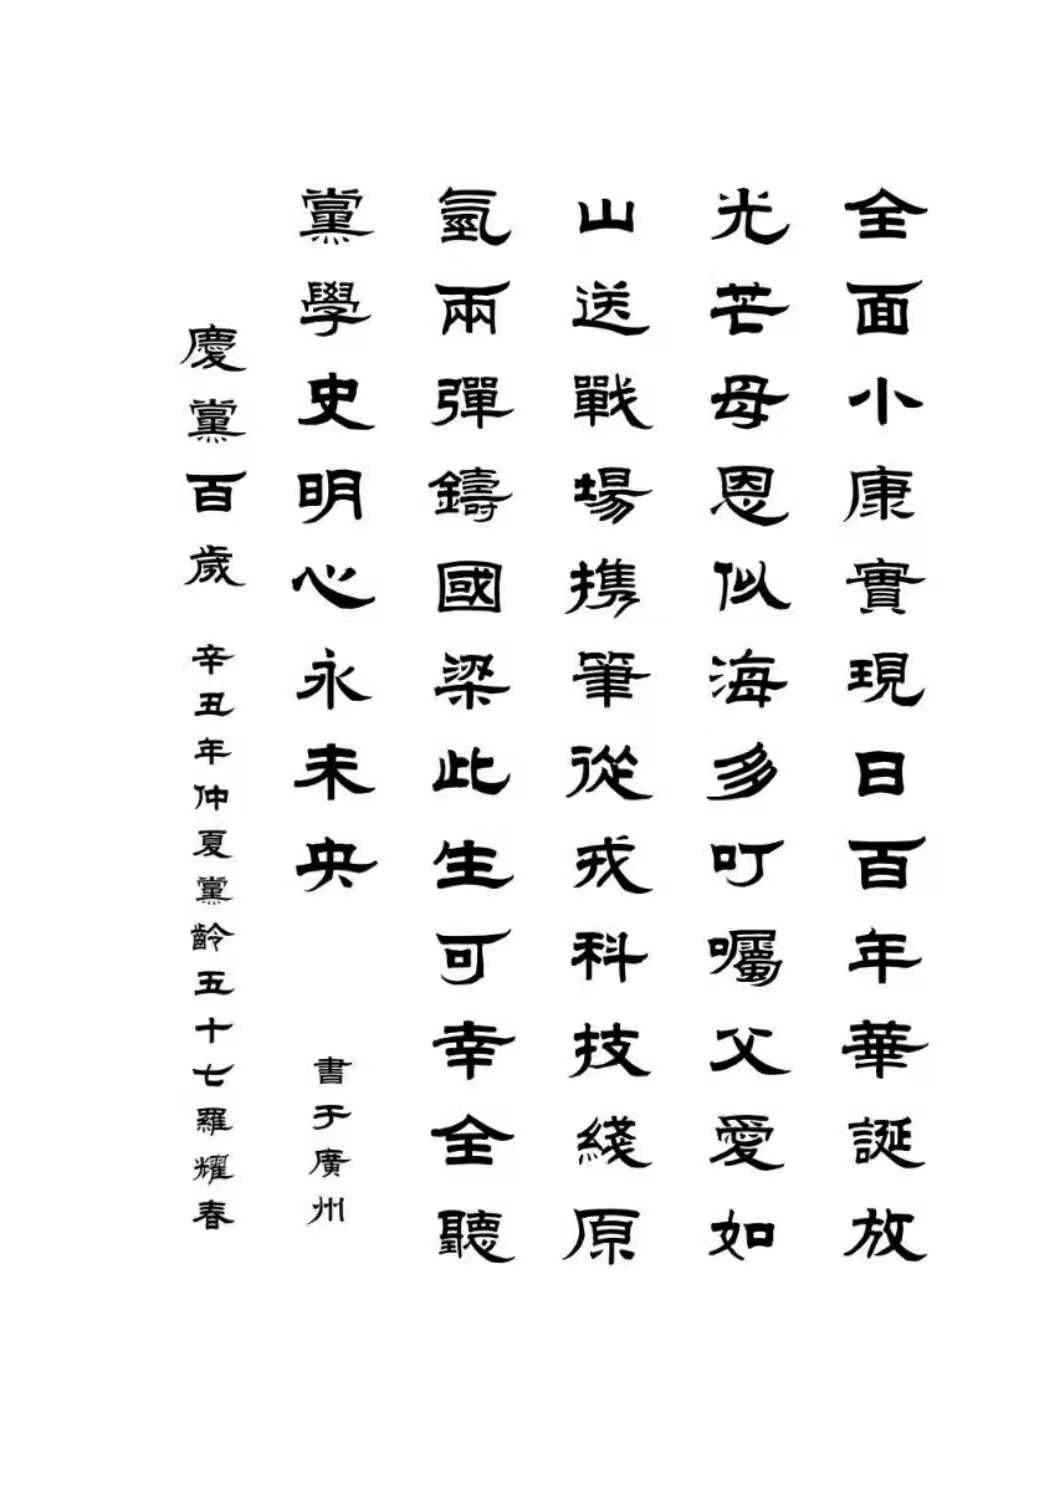 全面小康實現日百年華誕放
光芒母恩似海多叮囑父愛如
山送戰場携筆從戎科技綫原
氫兩彈鑄國梁此生可幸全聽
黨學史明心永未央
書于廣州
慶黨百歲 辛丑年仲夏黨齡五十七羅耀春